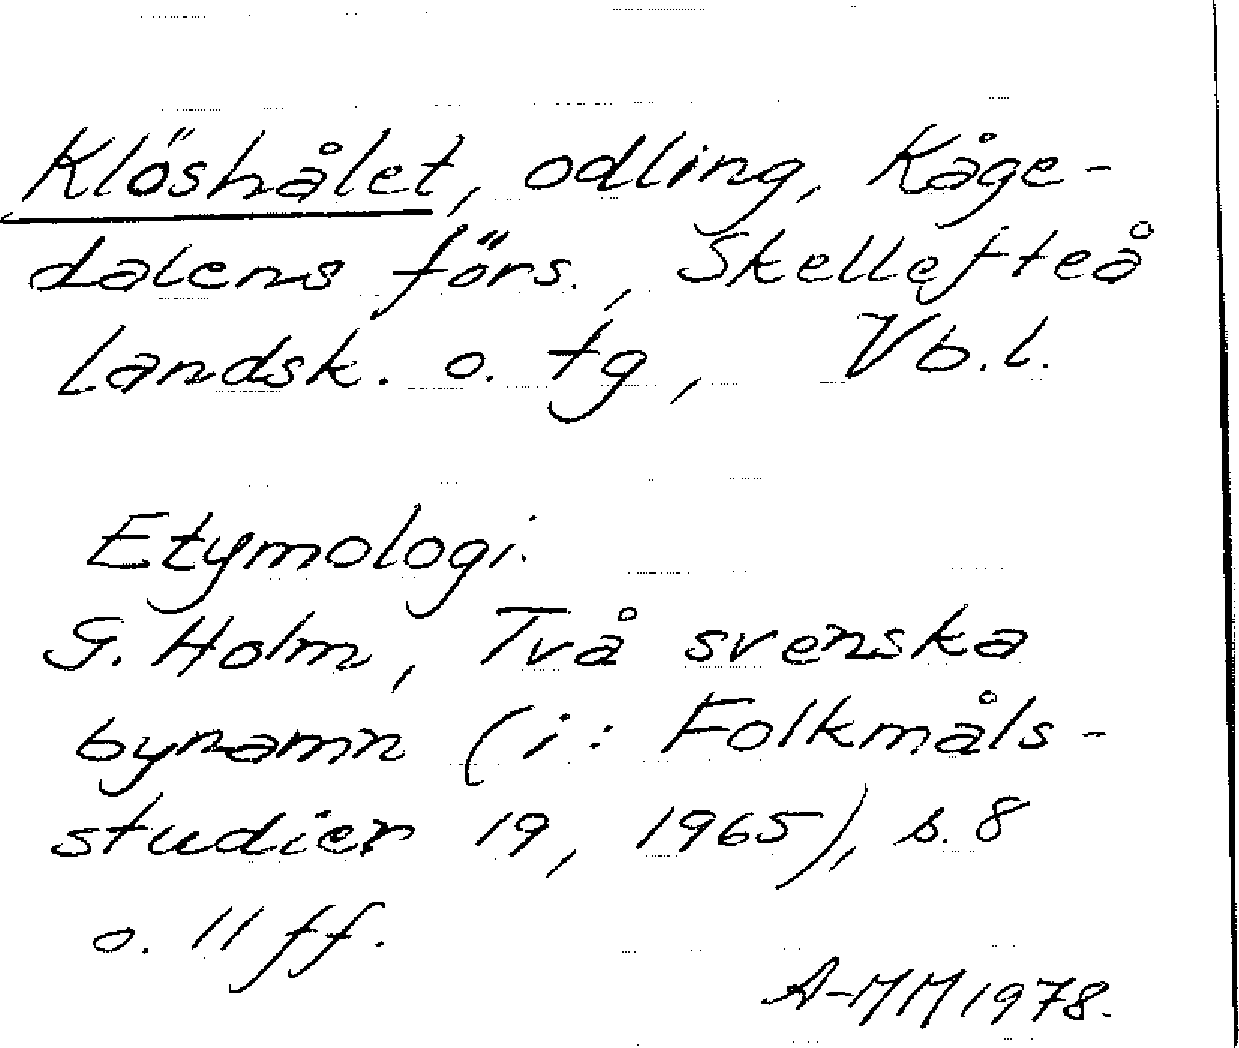 Klöshålet, odling, Kåge-
dalens förs., Skellefteå
landsk. o. tg, Vb.l.
Etymologi.
G. Holm, Två svenska
bynamn (i: Folkmåls-
studier 19, 1965), s. 8
o. 11 ff.
A-MM 1978.